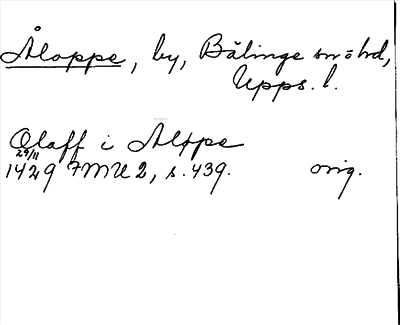 Åloppe, by, Bälinge sn o hd,
Upps. l.
Olaff i Aloppe
29/11
1429 FMU 2, s. 439. orig.